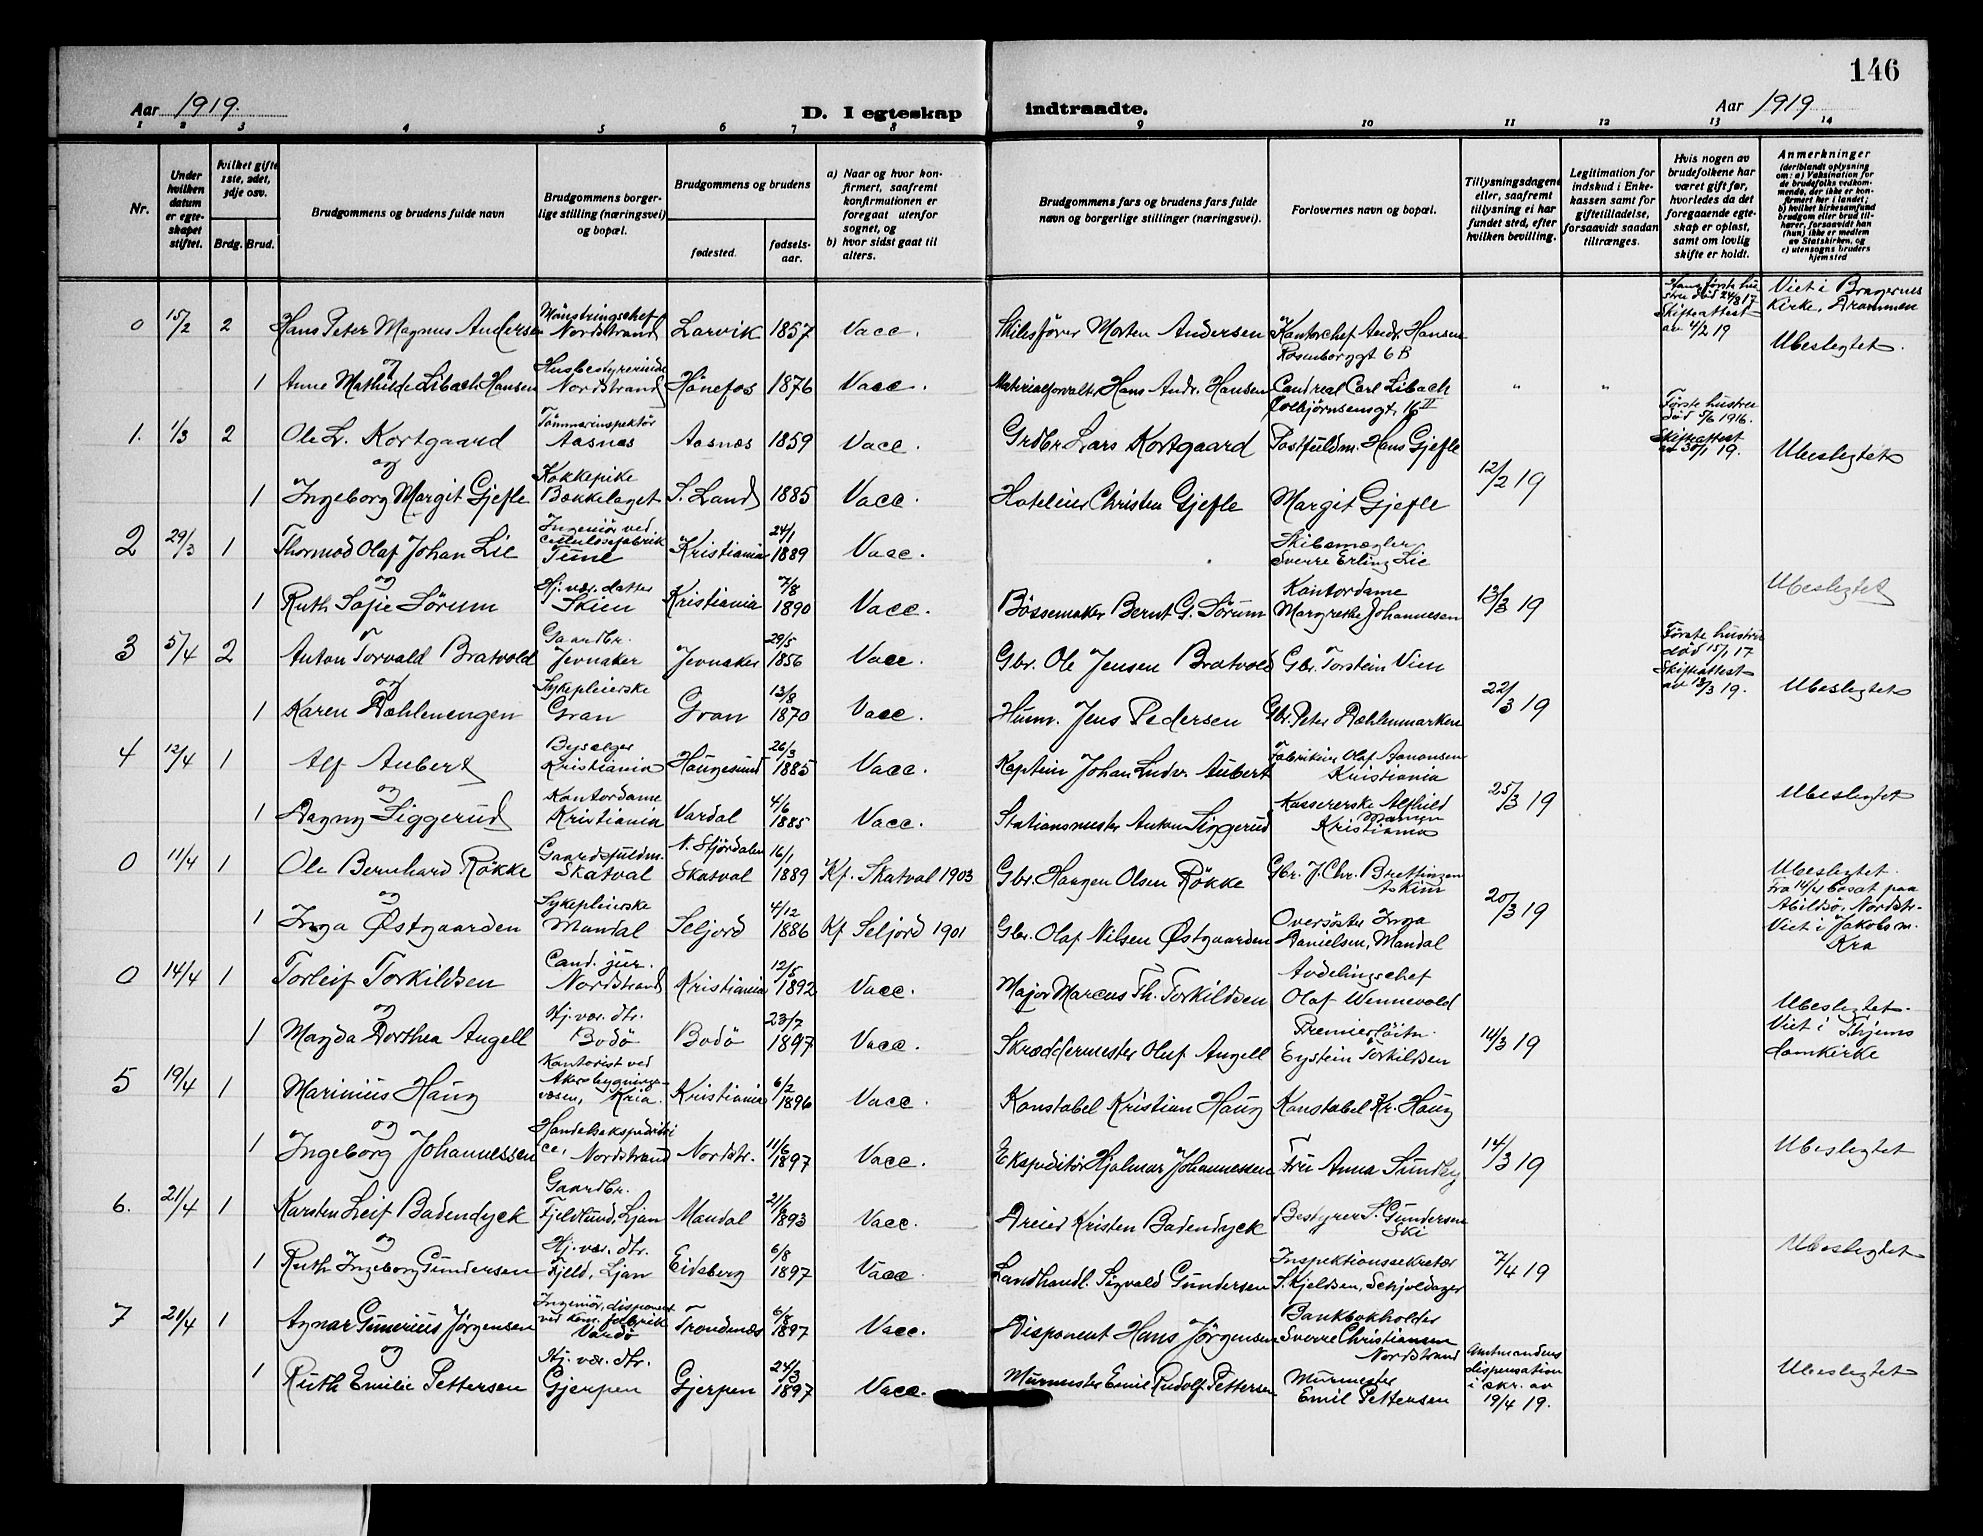 146
Aar 1919.
D. I egteskap
indtraadte.
Aar 1919
1 2 3 4 5 6 7 8 9 10 11 12 13 14
Nr.
Under hvilken datum er egteskapet stiftet.
Hvilket gifte 1ste, 2det, 3dje osv.
Brdg. Brud.
Brudgommens og brudens fulde navn
Brudgommens borgerlige stilling (næringsvei) og bopæl.
Brudgommens og brudens
fødested. fødselsaar.
a) Naar og hvor konfirmert, saafremt konfirmationen er foregaat utenfor sognet, og
b) hvor sidst gaat til alters.
Brudgommens fars og brudens fars fulde navn og borgerlige stillinger (næringsvei).
Forlovernes navn og bopæl.
Tillysningsdagene eller, saafremt tillysning ei har fundet sted, efter hvilken bevilling.
Legitimation for indskud i Enkekassen samt for giftetilladelse, forsaavidt saadan tiltrænges.
Hvis nogen av brudefolkene har været gift før, hvorledes da det foregaaende egteskap er opløst, samt om lovlig skifte er holdt.
Anmerkninger
(deriblandt oplysning om: a) Vaksination for de brudefolks vedkommende, der ikke er konfirmert her i landet; b) hvilket kirkesamfund brudgom eller brud tilhører, forsaavidt han (hun) ikke er medlem av Statskirken, og c) utensogns bruders hjemsted
0 15/2 2 Hans Peter Magnus Andersen Mönstringschef Nordstrand Larvik 1857 Vacc. Skibsfører Morten Andersen Kontorchef Andr. Hansen Rosenborggt 6 B Hans første hustru död 24/8 17 Skifteattest av 4/2 19 Viet i Bragernes Kirke, Drammen Ubeslegtet.
og
1 Anne Mathilde Libach Hansen Husbestyrerinde Nordstrand Hönefos 1876 Vacc. Materialforvalter Hans Andr. Hansen Cand real Carl Libach Colbjørnsensgt. 16 II " "
1. 1/3 2 Ole L. Kortgaard Tömmerinspektör Aasnæs Aasnæs 1859 Vacc. Grdbr. Lars Kortgaard Postfuldm. Hans Gjefle Første hustru död 5/6 1916. Skifteattest av 30/1 19. Ubeslegtet
og
1 Ingeborg Margit Gjefle Kokkepike Bækkelaget S. Land 1885 Vacc. Hoteleier Christen Gjefle Margit Gjefle 12/2 19
2 29/3 1 Thormod Olaf Johan Lie Ingeniör ved cellulosefabrik Tune Kristiania 24/1 1889 Vacc. Skibsmægler Sverre Erling Lie
og
1 Ruth Sofie Sörum Hj. vær. datter Skien Kristiania 7/8 1890 Vacc. Bössemaker Bernt G. Sörum Kontordame Margrethe Johannesen 13/3 19 Ubeslegtet
3 5/4 2 Anton Torvald Bratvold Gaardbr. Jevnaker Jevnaker 29/5 1856 Vacc. Gbr. Ole Jensen Bratvold Gbr. Torstein Vien Første hustru död 15/1 17 Skifteattest av 13/3 19.
og
1 Karen Dæhlenengen Sykepleierske Gran Gran 13/8 1870 Vacc. Husm. Jens Pedersen Gbr. Peter Dæhlenmarken 22/3 19 Ubeslegtet
4 12/4 1 Alf Aubert Byselger Kristiania Haugesund 26/3 1885 Vacc. Kaptein Johan Ludv. Aubert Fabrikeier Olaf Aanonsen Kristiania
og
1 Dagny Siggerud Kontordame Kristiania Vardal 4/6 1885 Vacc. Stationsmester Anton Siggerud Kassererske Alfhild Kristiania 25/3 19 Ubeslegtet
0 11/4 1 Ole Bernhard Røkke Gaardsfuldm. Skatval N. Stjördalen Skatval 16/1 1889 Kf. Skatval 1903 Gbr. Haagen Olsen Røkke Gbr. J. Chr. Brettingen Askim Ubeslegtet.
og
1 Inga Østgaarden Sykepleierske Mandal Seljord 4/12 1886 Kf Seljord 1901 Gbr. Olaf Nilsen Østgaarden Oversöster Inga Danielsen, Mandal 20/3 19 Fra 14/4 bosat paa Abildsö, Nordstr. Viet i Jakobs m. Kra
0 14/4 1 Torleif Torkildsen Cand. jur. Nordstrand Kristiania 12/5 1892 Vacc. Major Marcus Th. Torkildsen Avdelingschef Olaf Wennevold
og
1 Magda Dorthea Angell Hj. vær. dtr. Bodö Bodö 23/7 1897 Vacc. Skræddermester Oluf Angell Premierlöitn. Eystein Torkildsen 14/3 19 Ubeslegtet. Viet i Thjems Domkirke
5 19/4 1 Marinius Haug Kontorist ved Akersbygningsvæsen, Kria. Kristiania 6/2 1896 Vacc. Konstabel Kristian Haug Konstabel Kr. Haug
og
1 Ingeborg Johannessen Handelsekspeditrice, Nordstrand Nordstr. 11/6 1897 Vacc. Ekspeditör Hjalmar Johannessen Fru Anna Sundby 14/3 19 Ubeslegtet
6. 21/4 1 Karsten Leif Badendyck Gaardbr. Fjeldlund, Ljan Mandal 21/8 1893 Vacc. Kristen Badendyck Bestyrer S. Gundersen Ski
og
1 Ruth Ingeborg Gundersen Hj. vær. dtr. Fjeld, Ljan Eidsberg 6/8 1897 Vacc Landhandl. Sigvald Gundersen Inspektionssekretær S. Kjeldsen, Schjoldager 7/4 19 Ubeslegtet
7 21/4 1 Agnar Gunerius Jörgensen Ingeniör, disponent ved kem. fabrik Vardö Trondenæs 6/8 1897 Vacc. Disponent Hans Jörgensen Bankbokholder Sverre Christiansen Nordstrand
og
1 Ruth Emilie Pettersen Hj. vær. dtr. Gjerpen Gjerpen 24/3 1897 Vacc. Murmester Emil Rudolf Pettersen Murmester Emil Pettersen Amtmandens dispensation i skr. av 19/4 19. Ubeslegtet